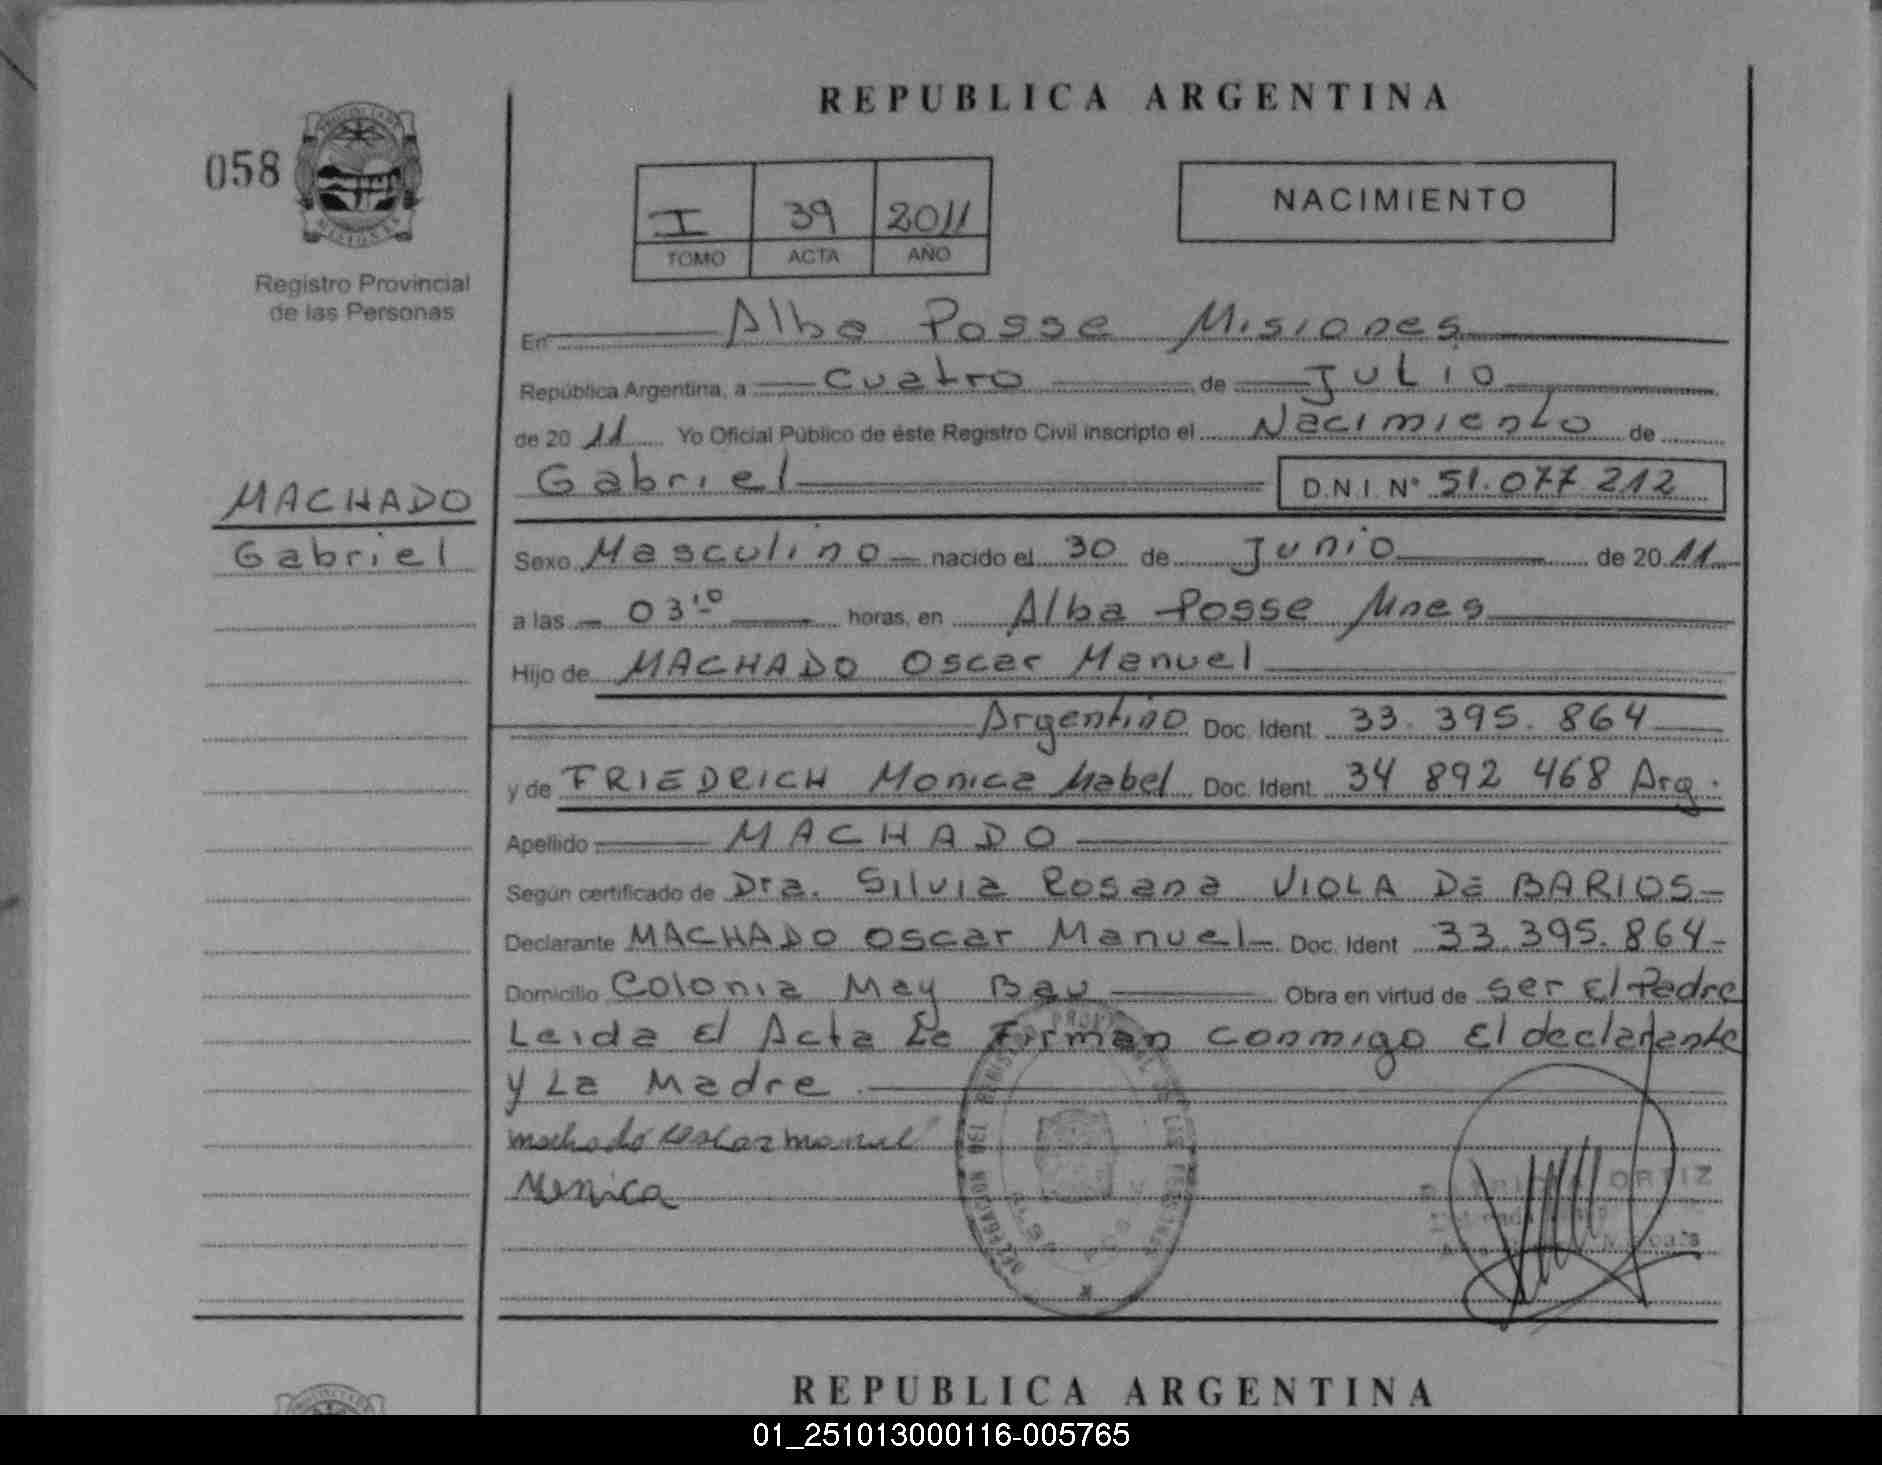 REPUBLICA ARGENTINA
058
I 39 2011
TOMO ACTA AÑO
NACIMIENTO
Registro Provincial
de las Personas
En Alba Posse Misiones
República Argentina, a cuatro de Julio
de 20 11 Yo Oficial Público de éste Registro Civil inscripto el Nacimiento de
Gabriel D.N.I. N° 51.077.212
MACHADO
Gabriel
Sexo Masculino nacido el 30 de Junio de 20 11
a las 03 10 horas, en Alba Posse Mnes
Hijo de MACHADO Oscar Manuel
Argentino Doc. Ident. 33.395.864
y de FRIEDRICH Monica Mabel Doc. Ident. 34 892 468 Arg.
Apellido MACHADO
Según certificado de Dra. Silvia Rosana VIOLA DE BARIOS
Declarante MACHADO Oscar Manuel Doc. Ident 33.395.864
Domicilio Colonia May Bau Obra en virtud de ser El Padre
Leida El Acta La Firman conmigo El declarante
y La Madre
machado oscar manuel
Monica
ORTIZ
REPUBLICA ARGENTINA
01_251013000116-005765